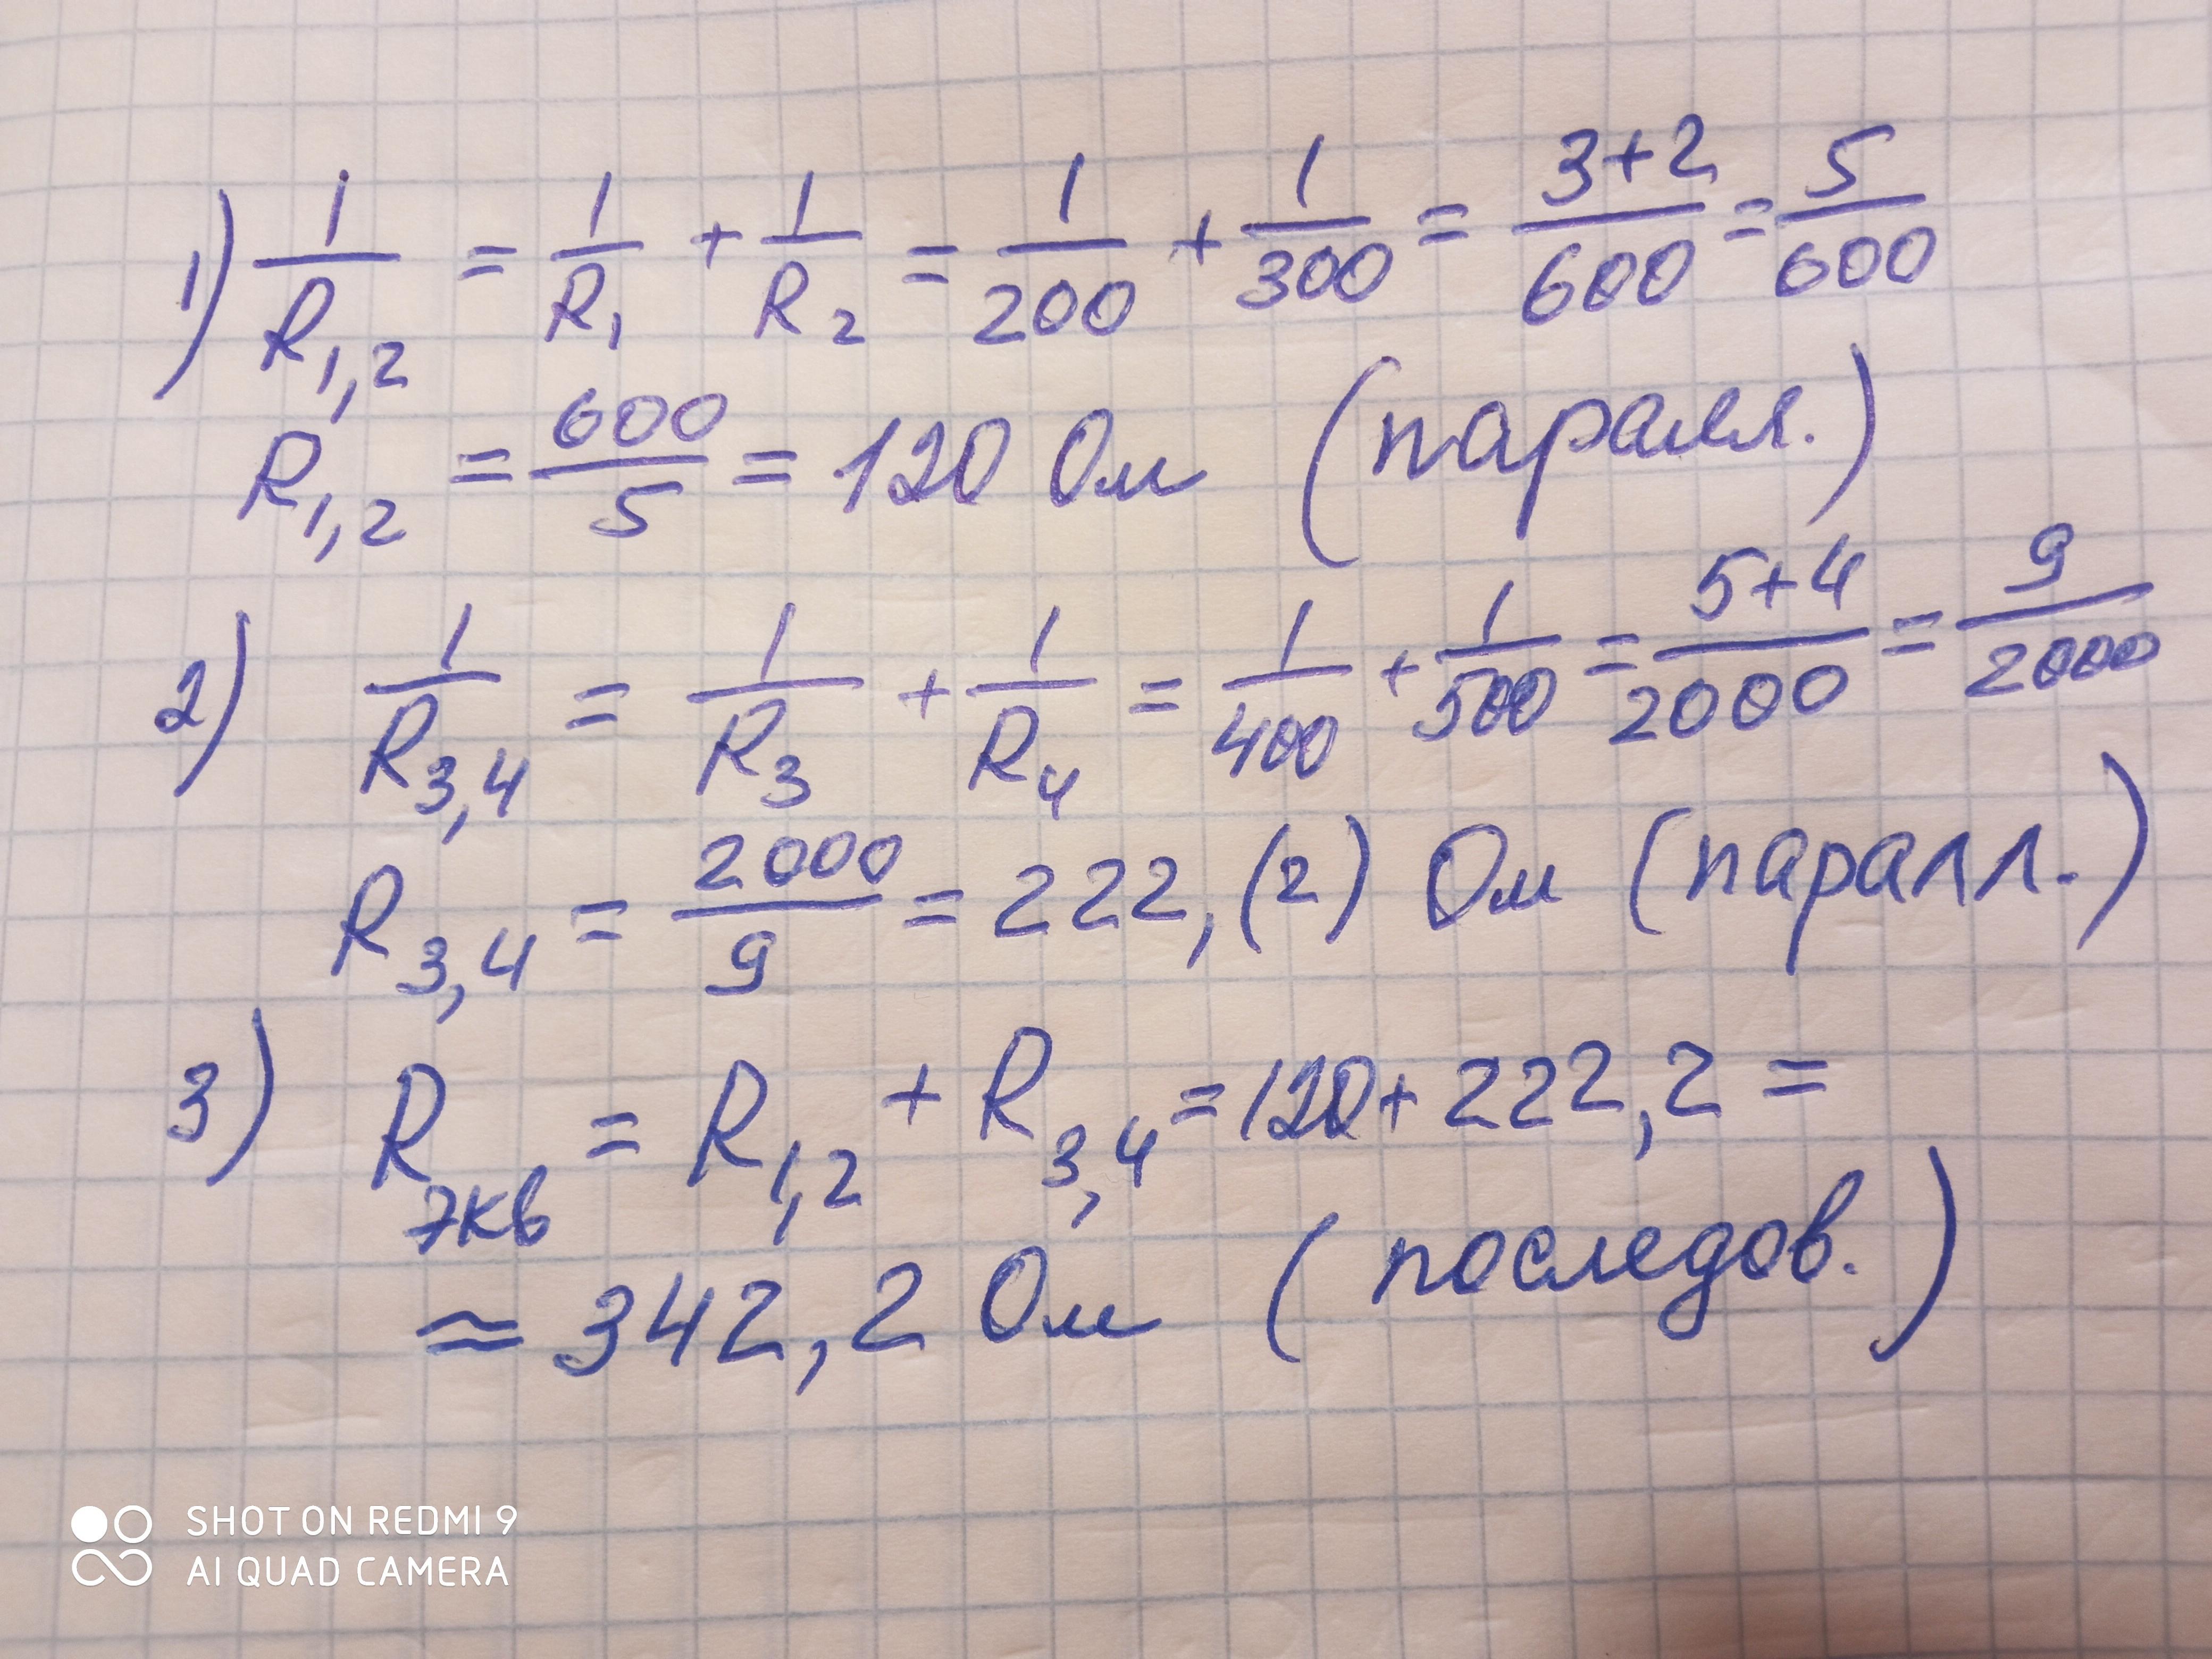 1) 1/R1,2 = 1/R1 + 1/R2 = 1/200 + 1/300 = 3+2/600 = 5/600
R1,2 = 600/5 = 120 Ом (паралл.)
2) 1/R3,4 = 1/R3 + 1/R4 = 1/400 + 1/500 = 5+4/2000 = 9/2000
R3,4 = 2000/9 = 222,(2) Ом (паралл.)
3) Rэкв = R1,2 + R3,4 = 120 + 222,2 =
≈ 342,2 Ом (последов.)
SHOT ON REDMI 9
AI QUAD CAMERA